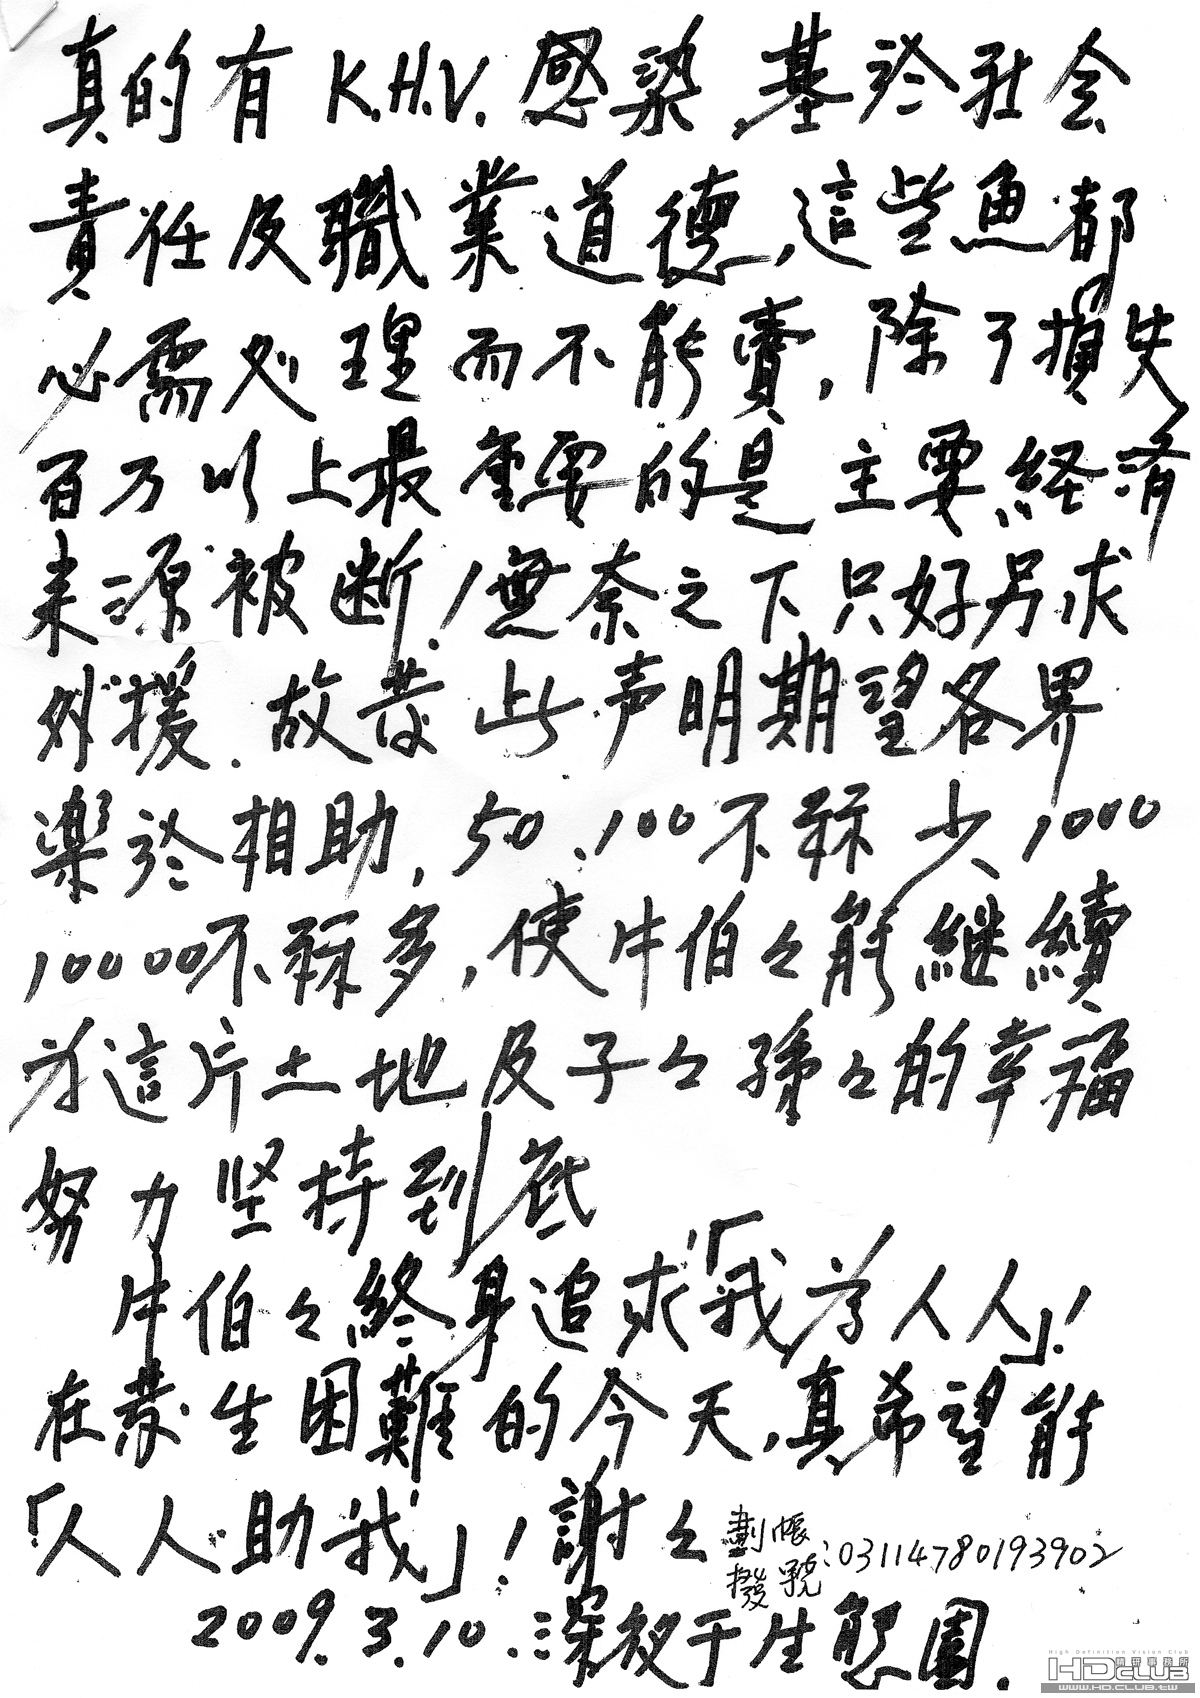 真的有K.H.V.感染,基於社会
責任及職業道德,這些魚都
必需処理而不能賣,除了損失
百万以上最重要的是主要経済
来源被断!無奈之下只好另求
外援.故发此声明期望各界
楽於相助,50.100不稀少1000
10000不稀多,使牛伯々能継續
为這片土地及子々孫々的幸福
努力坚持到底
牛伯々終身追求「我為人人」!
在发生困難的今天,真希望能
「人人助我」!謝々
劃撥帳號:03114780193902
2009.3.10.深夜于生態園.
High Definition Vision Club
HDCLUB 精研事務所
WWW.HD.CLUB.TW